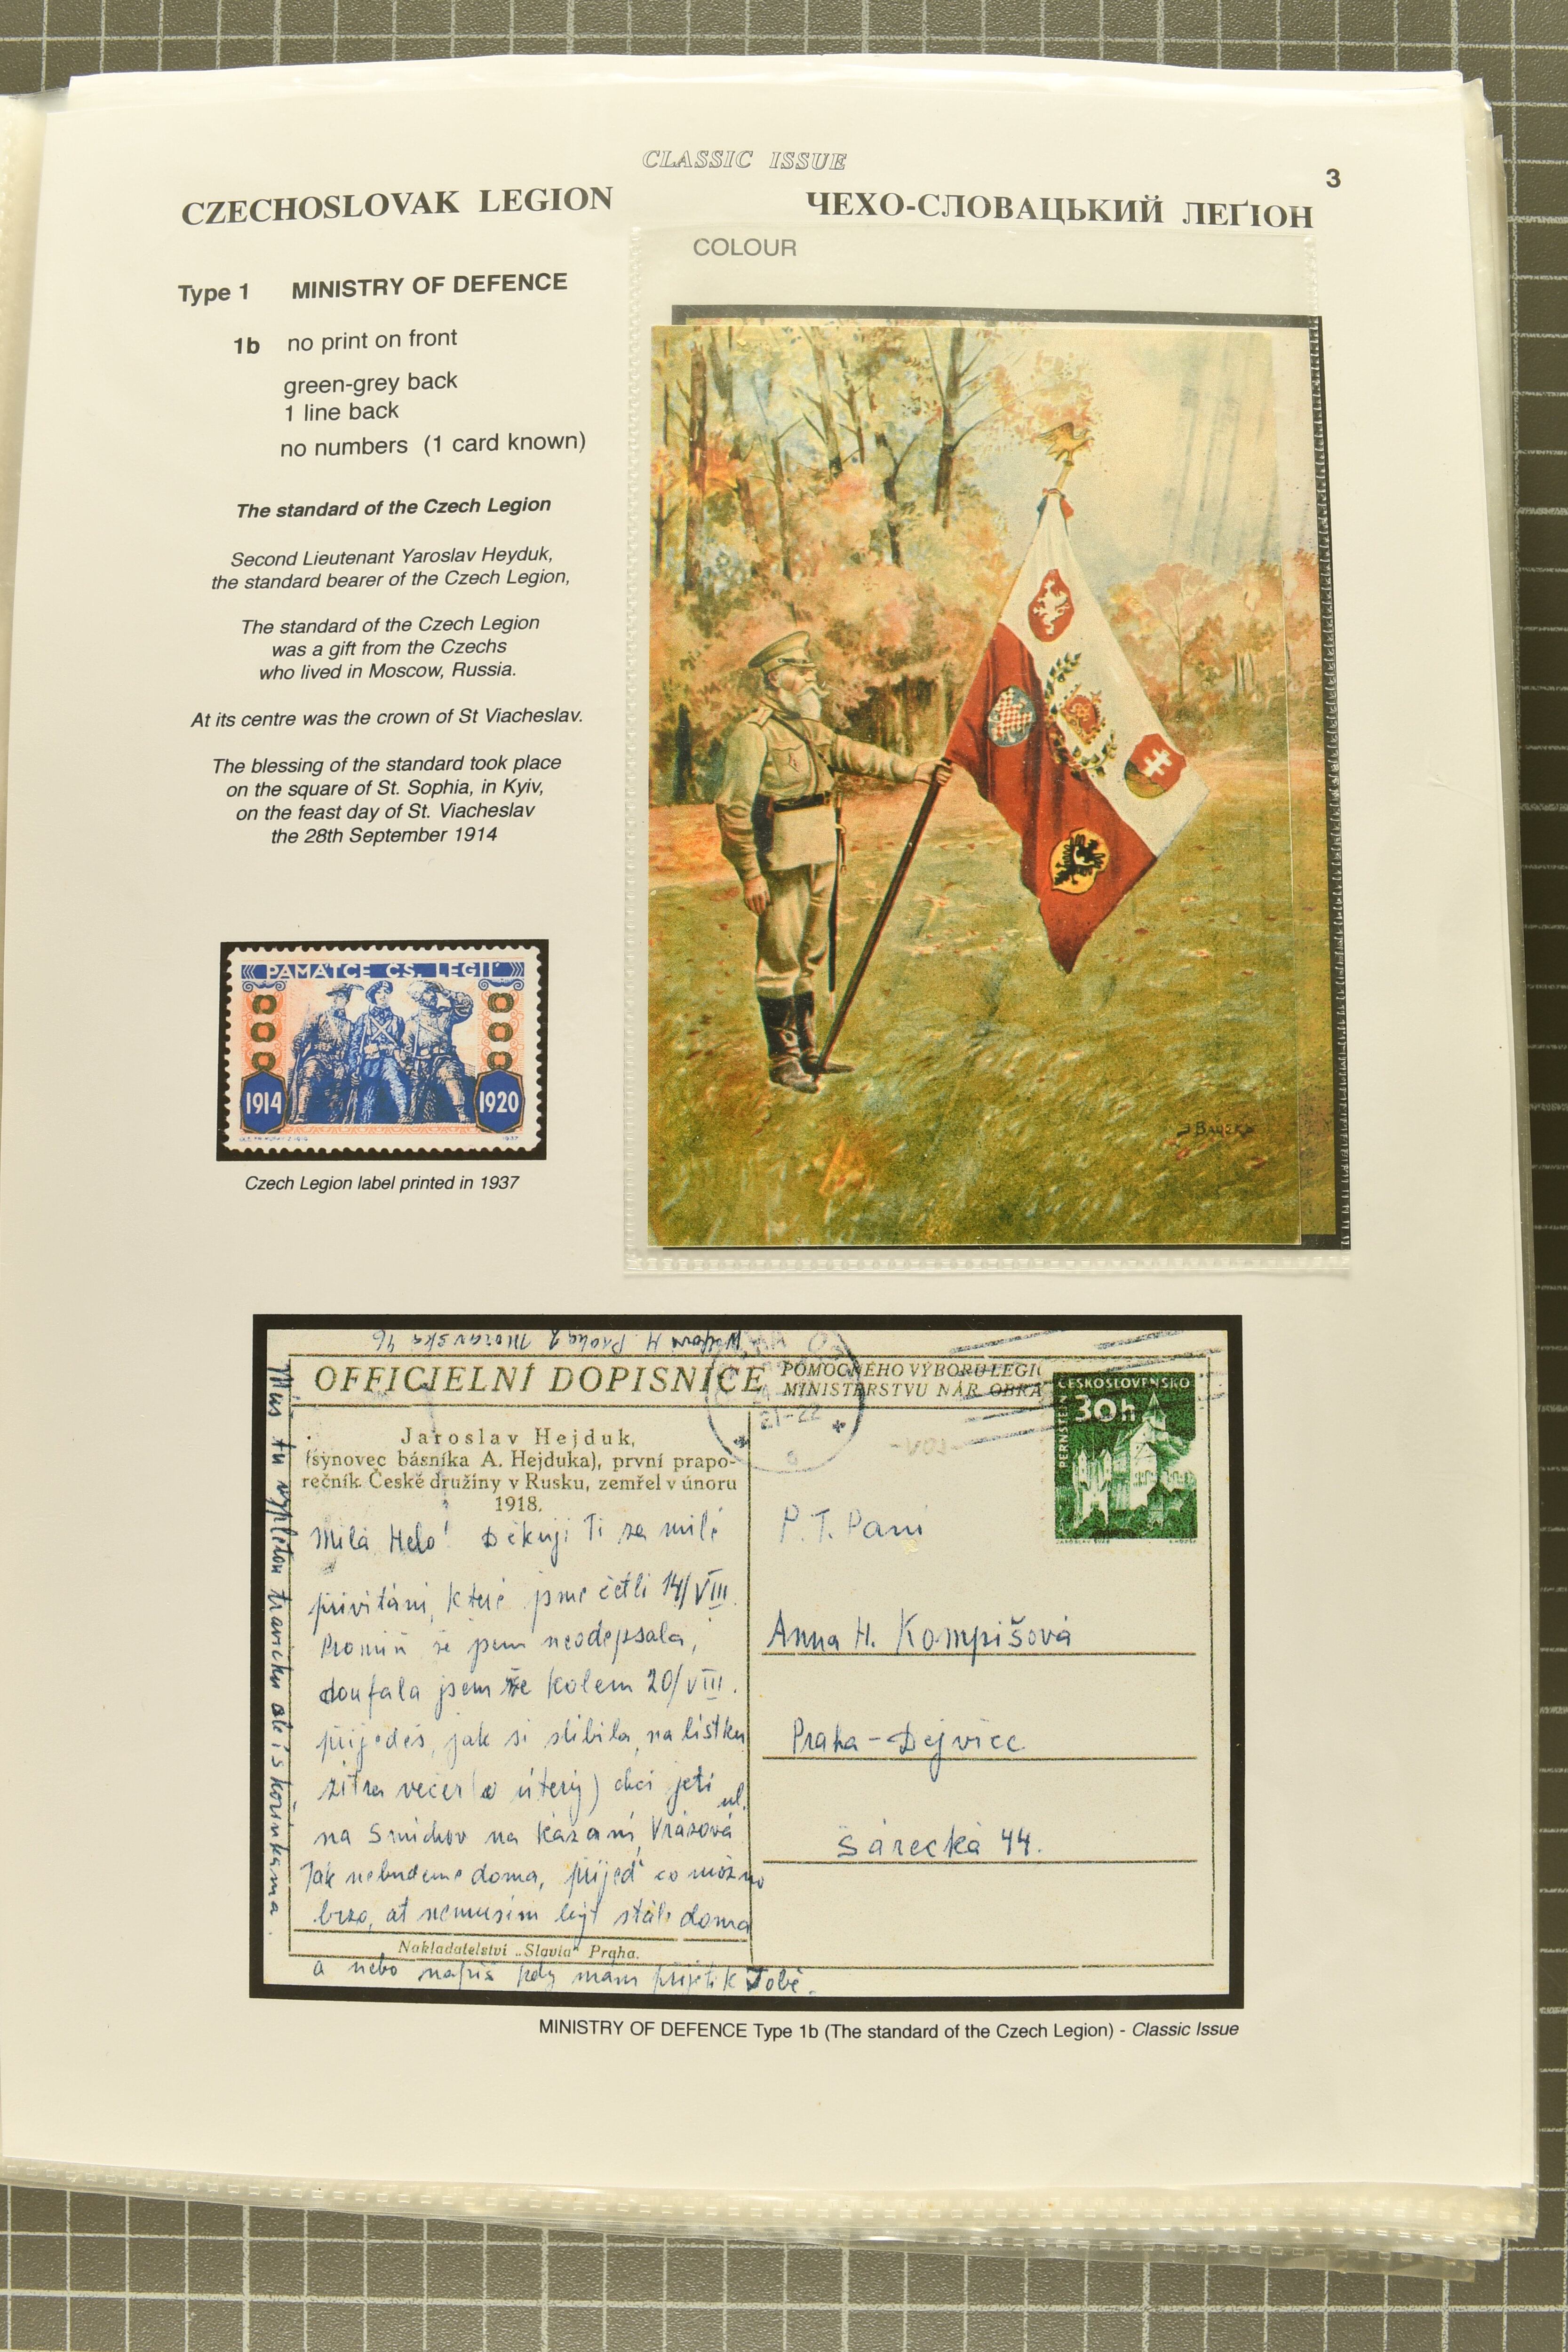 CLASSIC ISSUE
3
CZECHOSLOVAK LEGION
ЧЕХО-СЛОВАЦЬКИЙ ЛЕҐІОН
COLOUR
Type 1 MINISTRY OF DEFENCE
1b no print on front
green-grey back
1 line back
no numbers (1 card known)
The standard of the Czech Legion
Second Lieutenant Yaroslav Heyduk,
the standard bearer of the Czech Legion,
The standard of the Czech Legion
was a gift from the Czechs
who lived in Moscow, Russia.
At its centre was the crown of St Viacheslav.
The blessing of the standard took place
on the square of St. Sophia, in Kyiv,
on the feast day of St. Viacheslav
the 28th September 1914
PAMÁTCE ČS. LEGIÍ
1914
1920
1937
Czech Legion label printed in 1937
Praha 2 Moravská 46
OFFICIELNÍ DOPISNICE
POMOCNÉHO VÝBORU LEGI
MINISTERSTVU NÁR. OBRA
21-22
ČESKOSLOVENSKO
30h
PERNŠTEJN
Jaroslav Hejduk,
(synovec básníka A. Hejduka), první prapo-
rečník České družiny v Rusku, zemřel v únoru
1918.
Milá Helo! Děkuji Ti za milé
přivítání, které jsme četli 14/VIII.
Promiň že jsem neodepsala,
doufala jsem že kolem 20/VIII.
přijedeš, jak si slibila, na lístku
zítra večer (v úterý) chci jeti
na Smíchov na kázání, Vrázová ul.
Tak nebudeme doma, přijeď co možno
brzo, ať nemusím být stále doma
a nebo napiš kdy mám přijeti k Tobě.
Nakladatelství „Slavia" Praha.
P. T. Paní
Anna H. Kompišová
Praha - Dejvice
Šárecká 44.
MINISTRY OF DEFENCE Type 1b (The standard of the Czech Legion) - Classic Issue